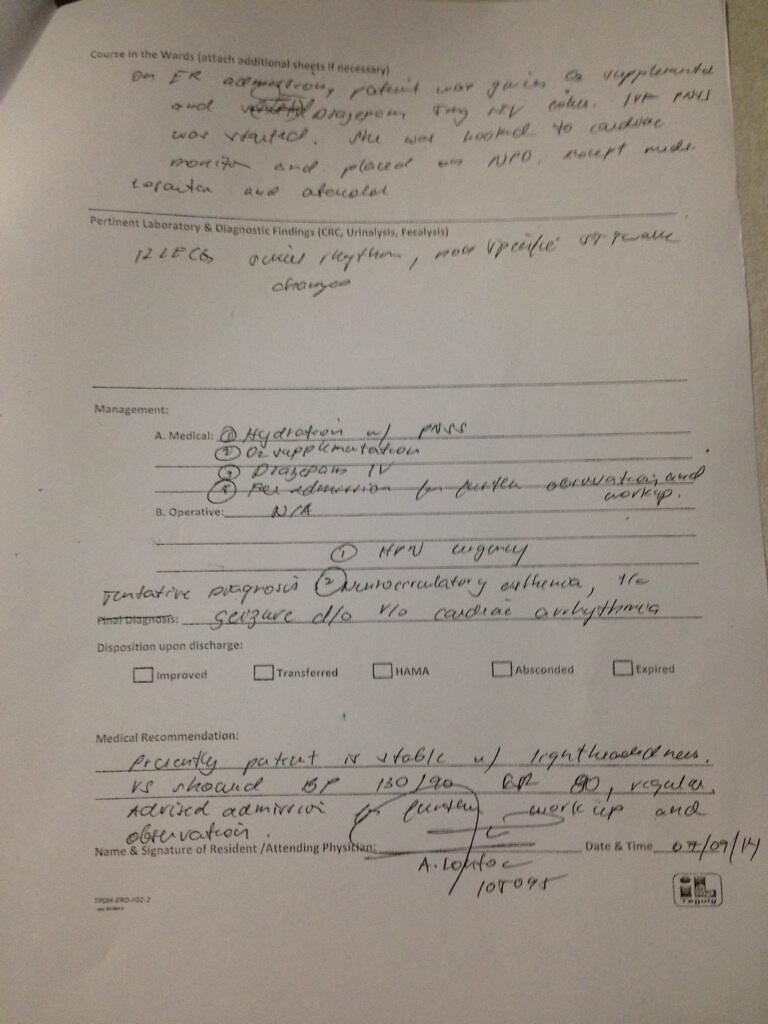 Course in the Wards (attach additional sheets if necessary)
On ER patient was given O2 supplemental
and Diazepam IV PNSS
was started. She was hooked to cardiac
monitor and placed on NPO, except meds.
Losartan and atenolol
Pertinent Laboratory & Diagnostic Findings (CBC, Urinalysis, Fecalysis)
12 L ECG rhythm, non specific ST T wave
changes
Management:
A. Medical: ① Hydration w/ PNSS
② O2 supplementation
③ Diazepam IV
④ For admission for further observation and
workup.
B. Operative: N/A
① HPN urgency
Tentative Diagnosis ② Neurocirculatory asthenia, r/o
Final Diagnosis: seizure d/o r/o cardiac arrhythmia
Disposition upon discharge:
Improved Transferred HAMA Absconded Expired
Medical Recommendation:
Presently patient is stable w/ lightheadedness.
VS showed BP 130/90 80, regular.
Advised admission for further work up and
observation.
Name & Signature of Resident /Attending Physician: Date & Time 07/09/14
A.
105095
Taguig